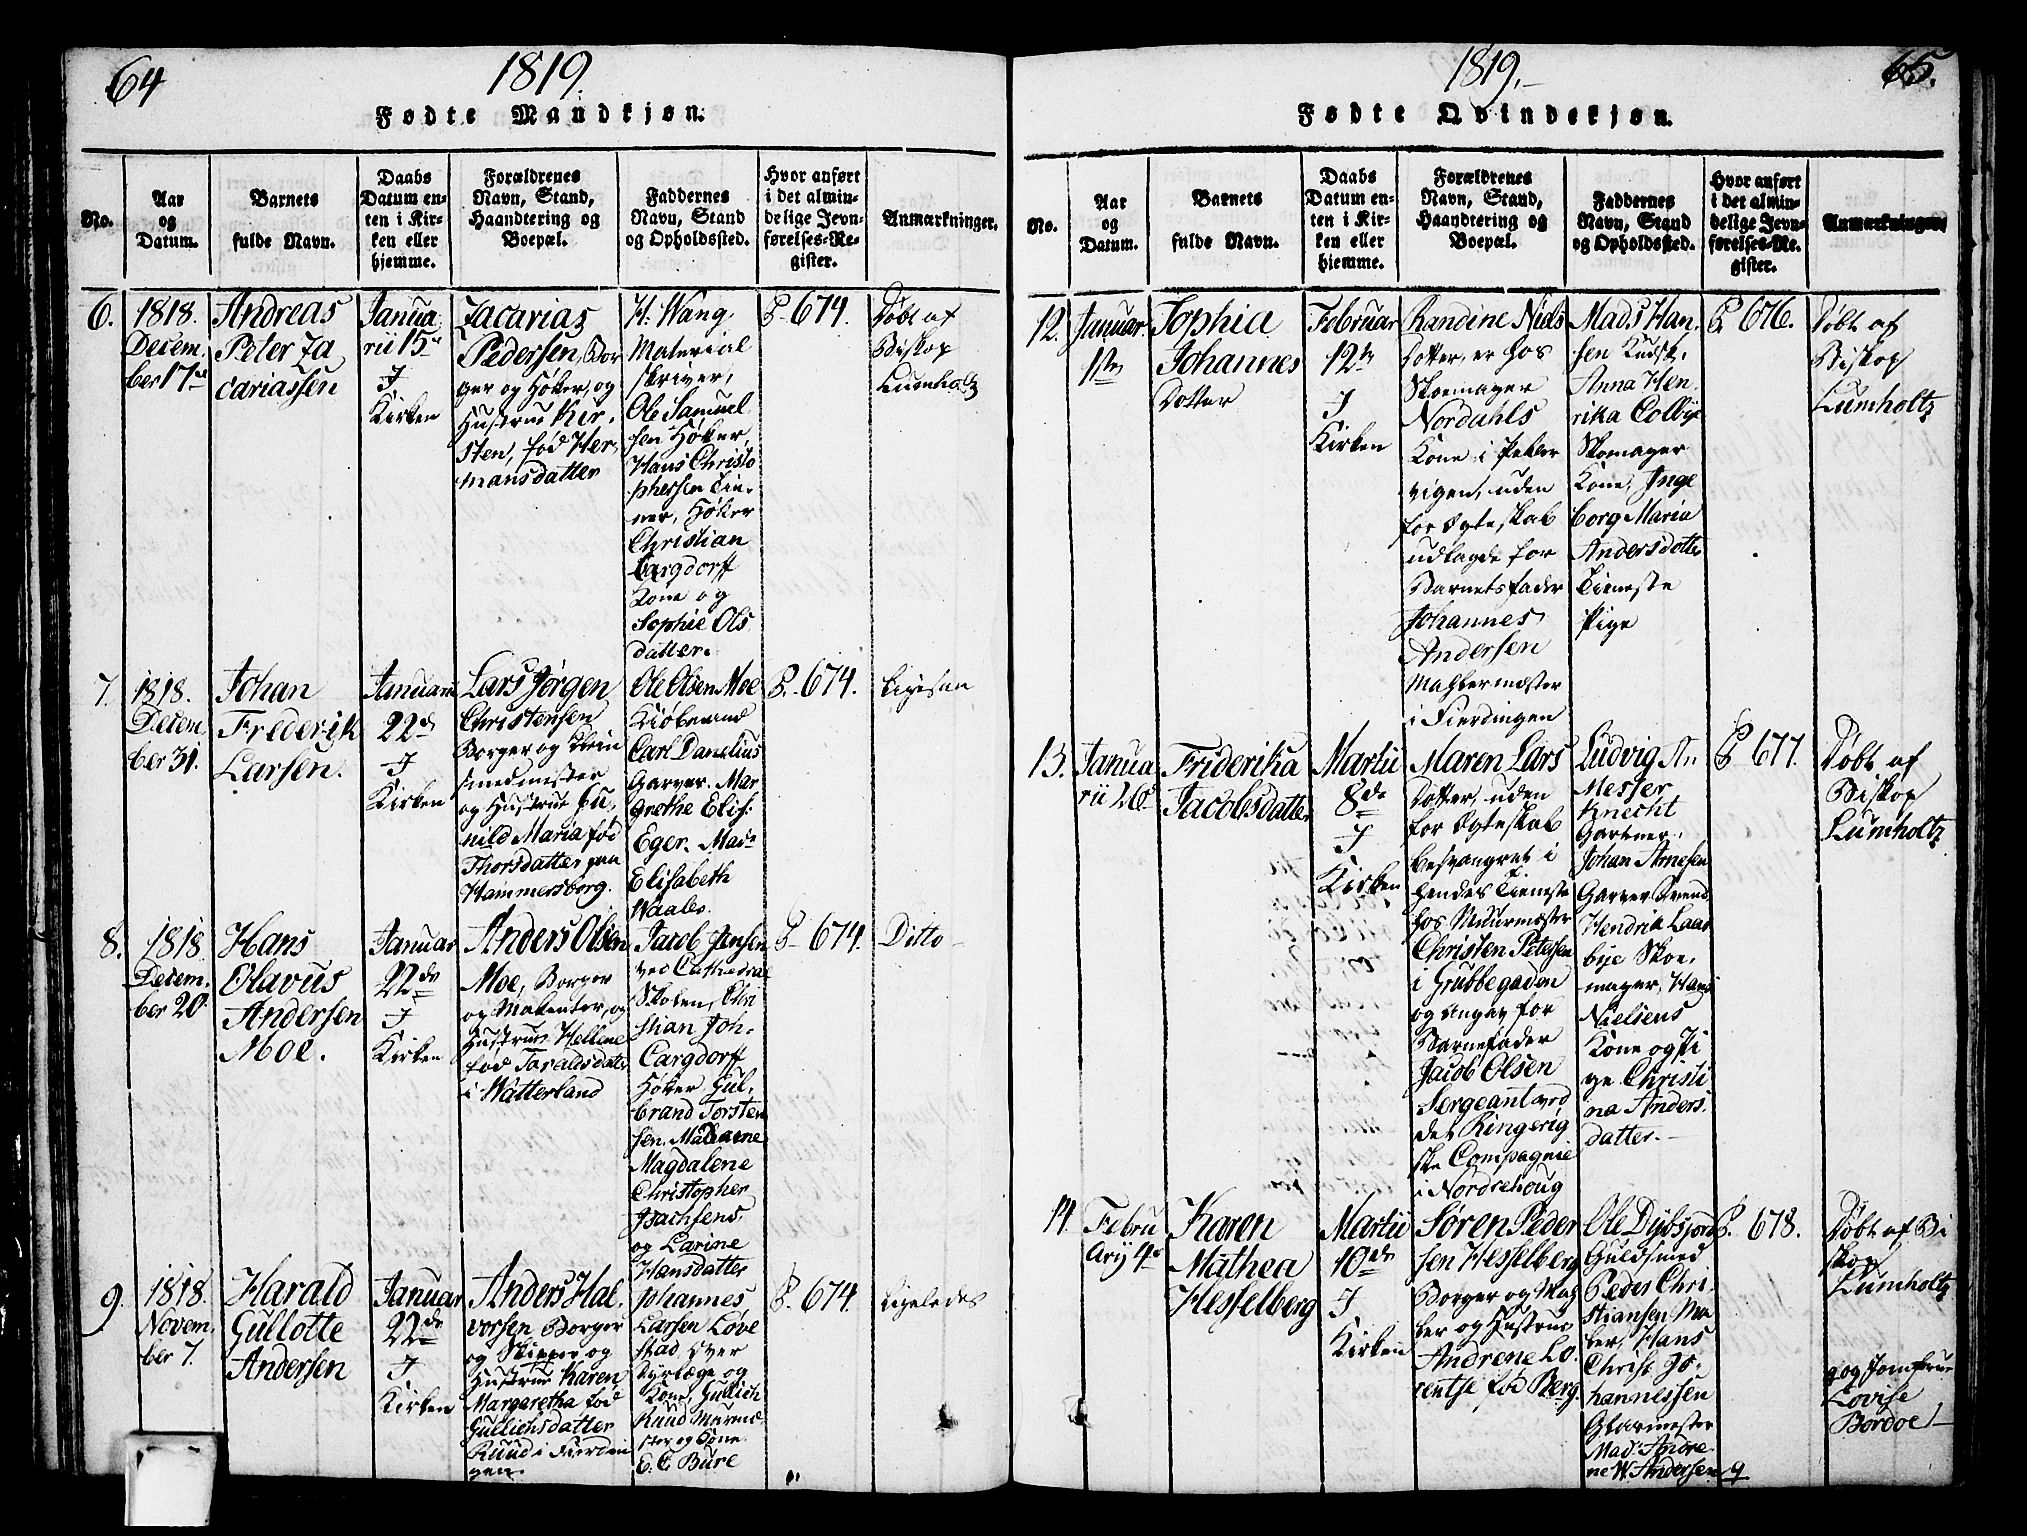 64
1819.
Fødte Mandkjøn.
No.
Aar
og
Datum.
Barnets
fulde Navn.
Daabs
Datum en-
ten i Kir-
ken eller
hjemme.
Forældrenes
Navn, Stand,
Haandtering og
Boepæl.
Faddernes
Navn, Stand
og Opholdssted.
Hvor anført
i det almin-
delige Jevn-
førelses-Re-
gister.
Anmærkninger.
6.
1818.
Decem
ber 17de
Andreas
Peter Za
cariassen
Janua
rii 15de
I
Kirken
Zacarias
Pedersen, Bor
ger og Høker, og
Hustrue Kir
sten, fød Her
mansdatter
H. Wang,
Material
skriver,
Ole Samuel
sen Høker,
Hans Christo
phersen
Høker
Christian
Cargdorff
Kone og
Sophie Ols
datter.
P. 674.
Døbt af
Biskop
Lumholtz
7.
1818.
Decem
ber 31.
Johan
Frederik
Larsen.
Januarii
22de
I
Kirken
Lars Jørgen
Christensen
Borger og Klein
smedmester
og Hustrue Gu
nild Maria fød
Thorsdatter paa
Hammersborg.
Ole Olsen Moe
Kiøbmand
Carl Danelius
Garver. Mar
grethe Elis:
Eger. Mad.
Elisabeth
Waales.
P. 674.
Ligesaa
8.
1818
Decem
ber 20.
Hans
Olavus
Andersen
Moe.
Januar
22de
I
Kirken
Anders Olsen
Moe, Borger
og
Hustrue Hellene
fød Taraldsdatter
i Watterland
Jacob Jensen
ved Cathedral
Skolen, Chri
stian Joh.
Cargdorff
Høker, Gul
brand Torsten
sen. Madame
Magdalene
Christopher
Isachsens.
og Larine
Hansdatter
P. 674.
Ditto
9.
1818.
Novem
ber 7.
Harald
Gullotte
Andersen
Januar
22de
I
Kirken
Anders Hal
vorsen Borger
og Skipper og
Hustrue Karen
Margaretha fød
Gullichsdatter
Ruud i Fierdin
gen.
Johannes
Larsen Løve
stad, Over
Dyrlæge og
Kone, Gullich
Ruud Murme
ster og Kone
E. C. Bure
P. 674.
Ligeledes
1819.
65.
Fødte Qvindekjøn.
No.
Aar
og
Datum.
Barnets
fulde Navn.
Daabs
Datum en-
ten i Kir-
ken eller
hjemme.
Forældrenes
Navn, Stand,
Haandtering og
Boepæl.
Faddernes
Navn, Stand
og Opholdssted.
Hvor anført
i det almin-
delige Jevn-
førelses-Re-
gister.
Anmærkninger.
12.
Januar.
1ste
Sophia
Johannes
Datter
Februar
12te
I
Kirken
Randine Niels
Dotter, er hos
Skoemager
Nordahls
Kone i Peter
vigen, uden
for Egteskab
udlagde for
Barnetsfader
Johannes
Andersen
Mahlermester
i Fierdingen
Mads Han
sen Kudsk,
Anna Hen
rika Colbye
Skomager
Kone, Inge
borg Maria
Andersdotter
Tieneste
Pige
P. 676.
Døbt af
Biskop
Lumholtz
13.
Janua
rii 26de
Friderika
Jacobsdatter
Martii
8de
I
Kirken
Maren Lars
Dotter, uden
for Egteskab
besvangret i
hendes Tieneste
hos Muurmester
Christen Petersen
i Grubbegaden
og angav for
Barnefader
Jacob Olsen
Sergeant ved
det Ringerig
ske Compagnie
i Nordrehoug
Ludvig An
Messer
knecht
Gartner,
Johan Arnesen
Garver Svend,
Hendrik Laar
bye Skoe
mager, Hans
Nielsens
Kone og Pi
ge Christi
na Anders
datter.
P. 677.
Døbt af
Biskop
Lumholtz
14.
Febru
arij 4de
Karen
Mathea
Hesselberg
Martii
10de
I
Kirken
Søren Peder
sen Hesselberg
Borger og Mah
ler og Hustrue
Andrene Lo
rentse fød Berg.
Ole Dybsjord
Guldsmed
Peder Chri
stiansen Ma
ler, Hans
Christ. Jo
hannessen
Glarmester
Mad. Andre
ne W. Andersen
P. 678.
Døbt af Bi
skop
Lumholtz
og Jomfrue
Lovise
Bordoe